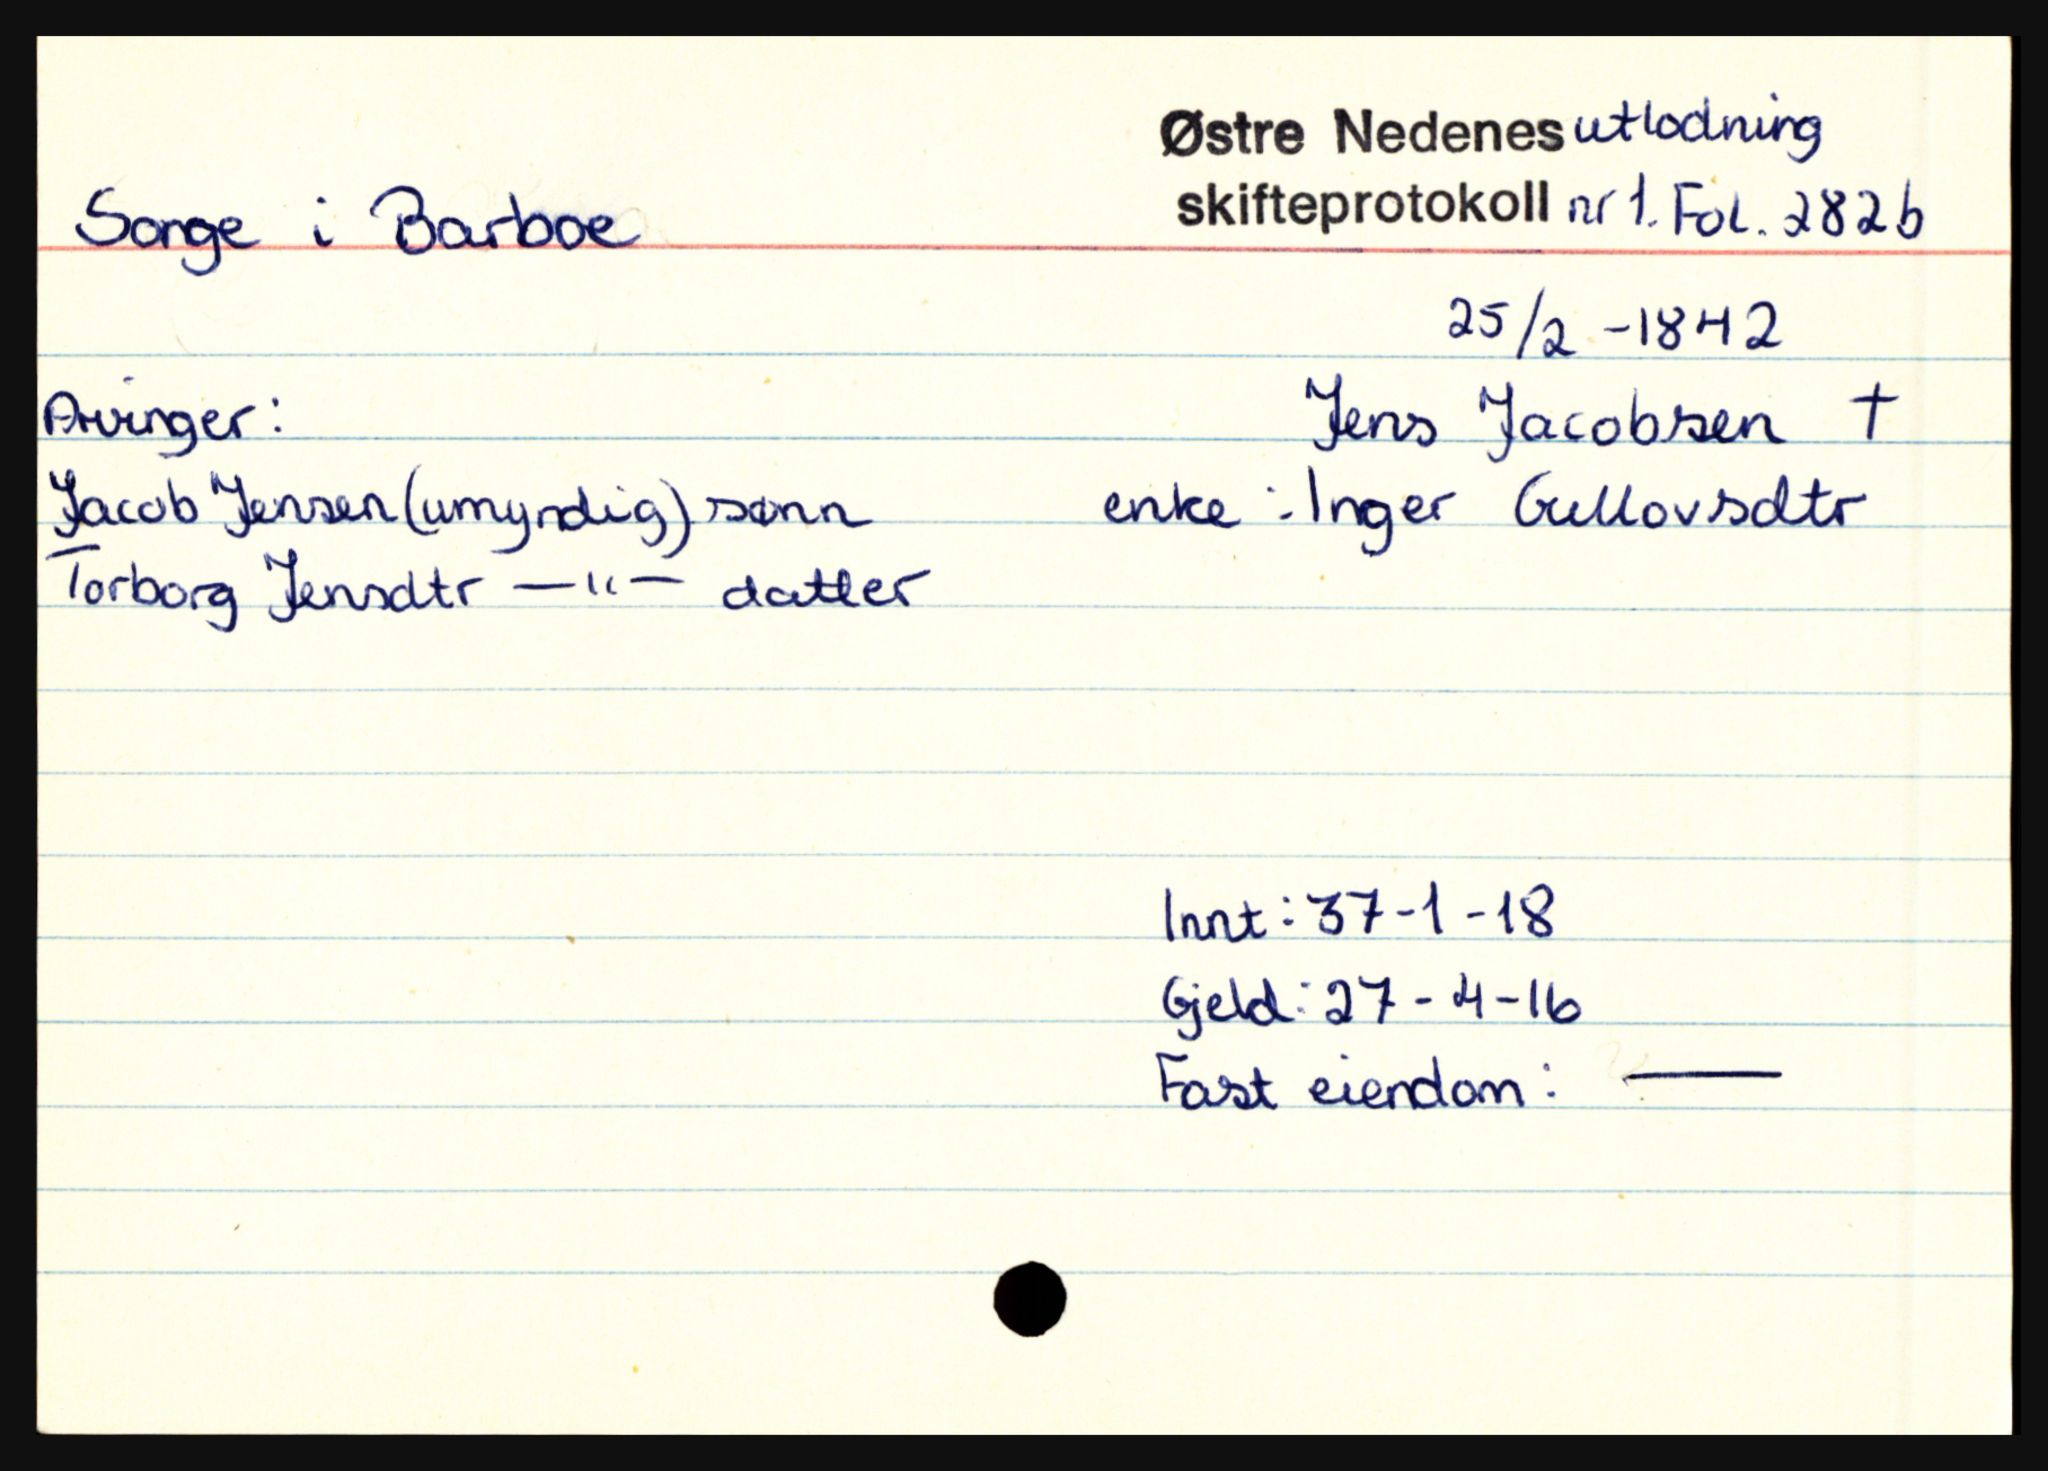 Østre Nedenes utlodning
skifteprotokoll nr 1. Fol. 282b
Songe i Barboe
25/2 -1842
Jens Jacobsen †
enke : Inger Gullovsdtr
Arvinger:
Jacob Jensen (umyndig) sønn
Torborg Jensdtr —"— datter
Innt: 37-1-18
Gjeld: 27-4-16
Fast eiendom: —